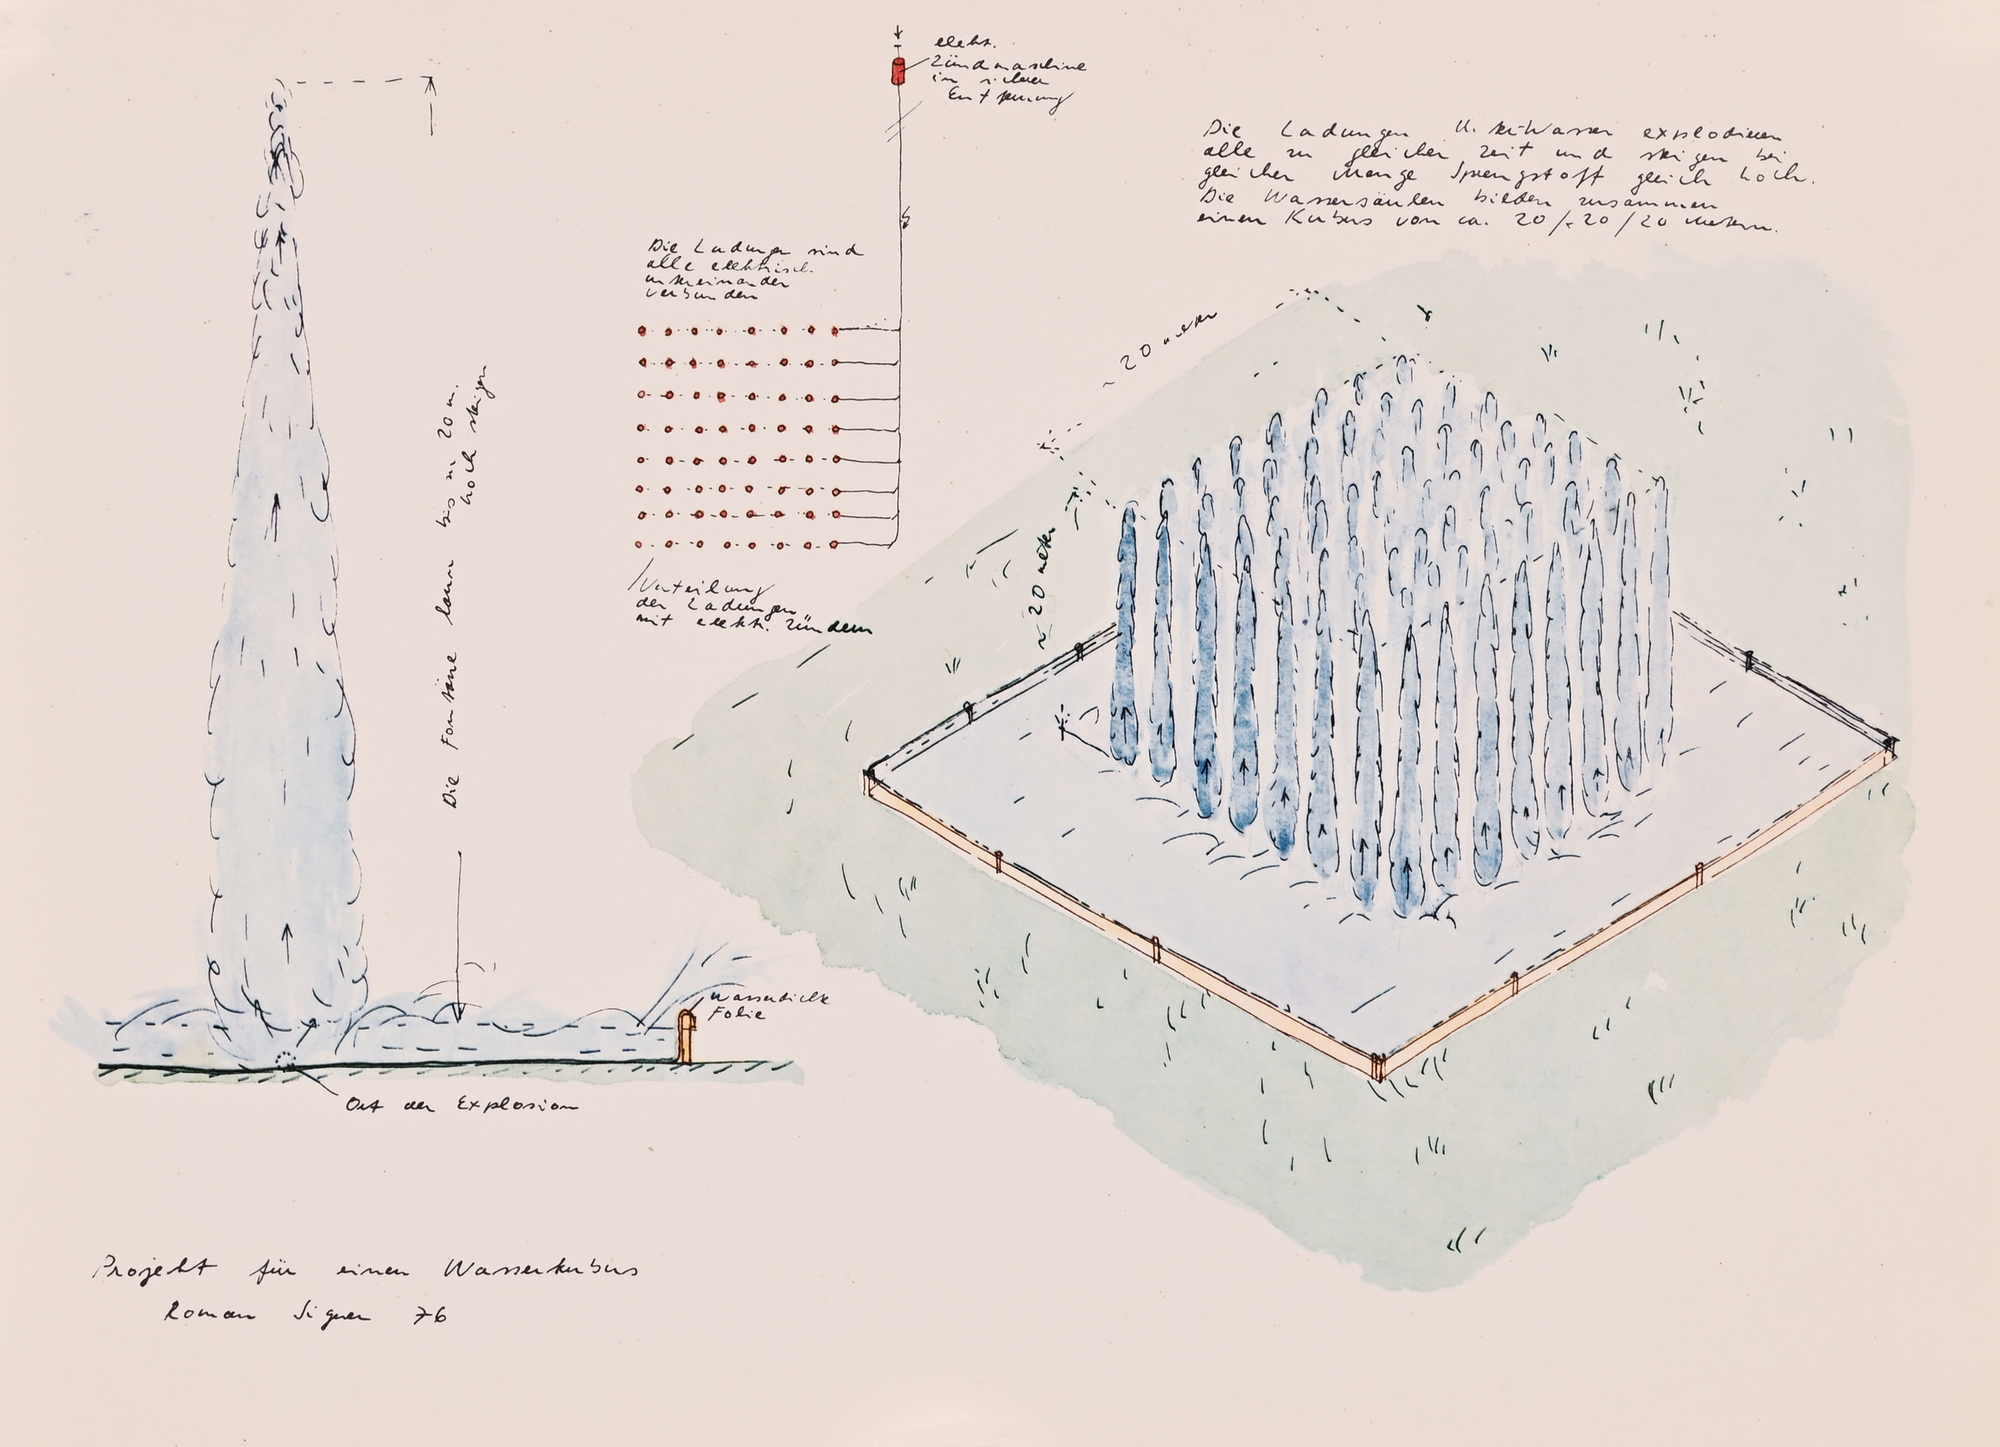 elekt.
Zündmaschine
in sicherer
Entfernung
Die Ladungen unter Wasser explodieren
alle zu gleicher Zeit und steigen bei
gleicher Menge Sprengstoff gleich hoch.
Die Wassersäulen bilden zusammen
einen Kubus von ca. 20/20/20 Metern.
Die Ladungen sind
alle elektrisch
untereinander
verbunden
~ 20 meter
~ 20 meter
Die Fontäne kann bis zu 20 m.
hoch steigen
Verteilung
der Ladungen
mit elektr. Zündern
Wasserdichte
Folie
Ort der Explosion
Projekt für einen Wasserkubus
Roman Signer 76